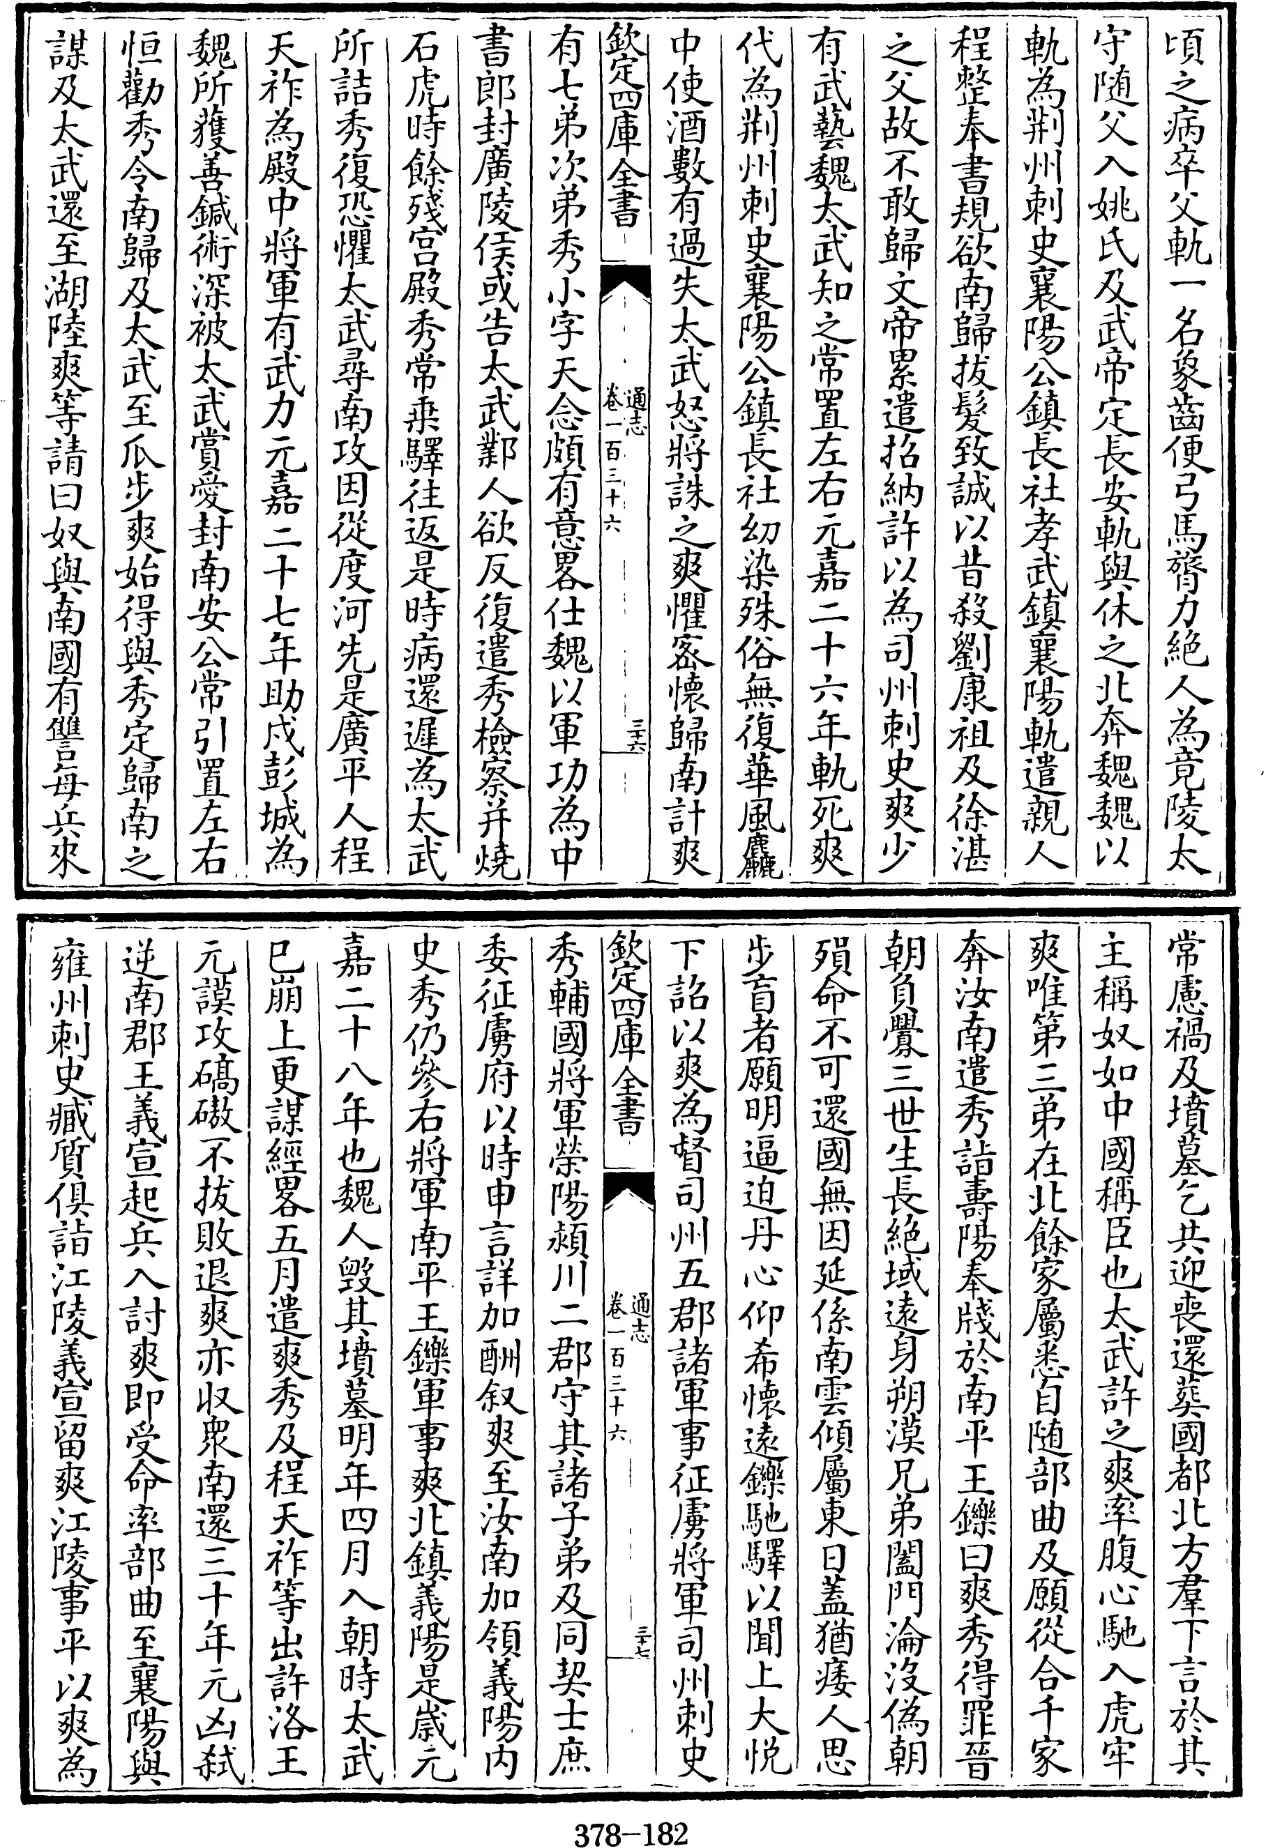 頃之病卒父軌一名象齒便弓馬膂力絕人為竟陵太
守隨父入姚氏及武帝定長安軌與休之北奔魏魏以
軌為荆州刺史襄陽公鎮長社孝武鎮襄陽軌遣親人
程整奉書規欲南歸拔髮致誠以昔殺劉康祖及徐湛
之父故不敢歸文帝累遣招納許以為司州刺史爽少
有武藝魏太武知之常置左右元嘉二十六年軌死爽
代為荆州刺史襄陽公鎮長社幼染殊俗無復華風麤
中使酒數有過失太武怒將誅之爽懼密懷歸南計爽
欽定四庫全書
通志
卷一百三十六
三十六
有七弟次弟秀小字天念頗有意畧仕魏以軍功為中
書郎封廣陵侯或告太武鄴人欲反復遣秀檢察并燒
石虎時餘殘宮殿秀常乗驛往返是時病還遲為太武
所詰秀復恐懼太武尋南攻因從度河先是廣平人程
天祚為殿中將軍有武力元嘉二十七年助戍彭城為
魏所獲善鍼術深被太武賞愛封南安公常引置左右
恒勸秀令南歸及太武至瓜步爽始得與秀定歸南之
謀及太武還至湖陸爽等請曰奴與南國有讐每兵來
常慮禍及墳墓乞共迎喪還葬國都北方羣下言於其
主稱奴如中國稱臣也太武許之爽率腹心馳入虎牢
爽唯第三弟在北餘家屬悉自随部曲及願從合千家
奔汝南遣秀詣壽陽奉牋於南平王鑠曰爽秀得罪晉
朝負舋三世生長絕域遠身朔漠兄弟闔門淪沒偽朝
殞命不可還國無因延係南雲傾屬東日蓋猶痿人思
步盲者願明逼迫丹心仰希懷遠鑠馳驛以聞上大悅
下詔以爽為督司州五郡諸軍事征虜將軍司州刺史
欽定四庫全書
通志
卷一百三十六
三十七
秀輔國將軍滎陽潁川二郡守其諸子弟及同契士庶
委征虜府以時申言詳加酬叙爽至汝南加領義陽内
史秀仍參右將軍南平王鑠軍事爽北鎮義陽是歲元
嘉二十八年也魏人毀其墳墓明年四月入朝時太武
已崩上更謀經畧五月遣爽秀及程天祚等出許洛王
元謨攻碻磝不拔敗退爽亦收衆南還三十年元凶弑
逆南郡王義宣起兵入討爽即受命率部曲至襄陽與
雍州刺史臧質俱詣江陵義宣留爽江陵事平以爽為
378-182